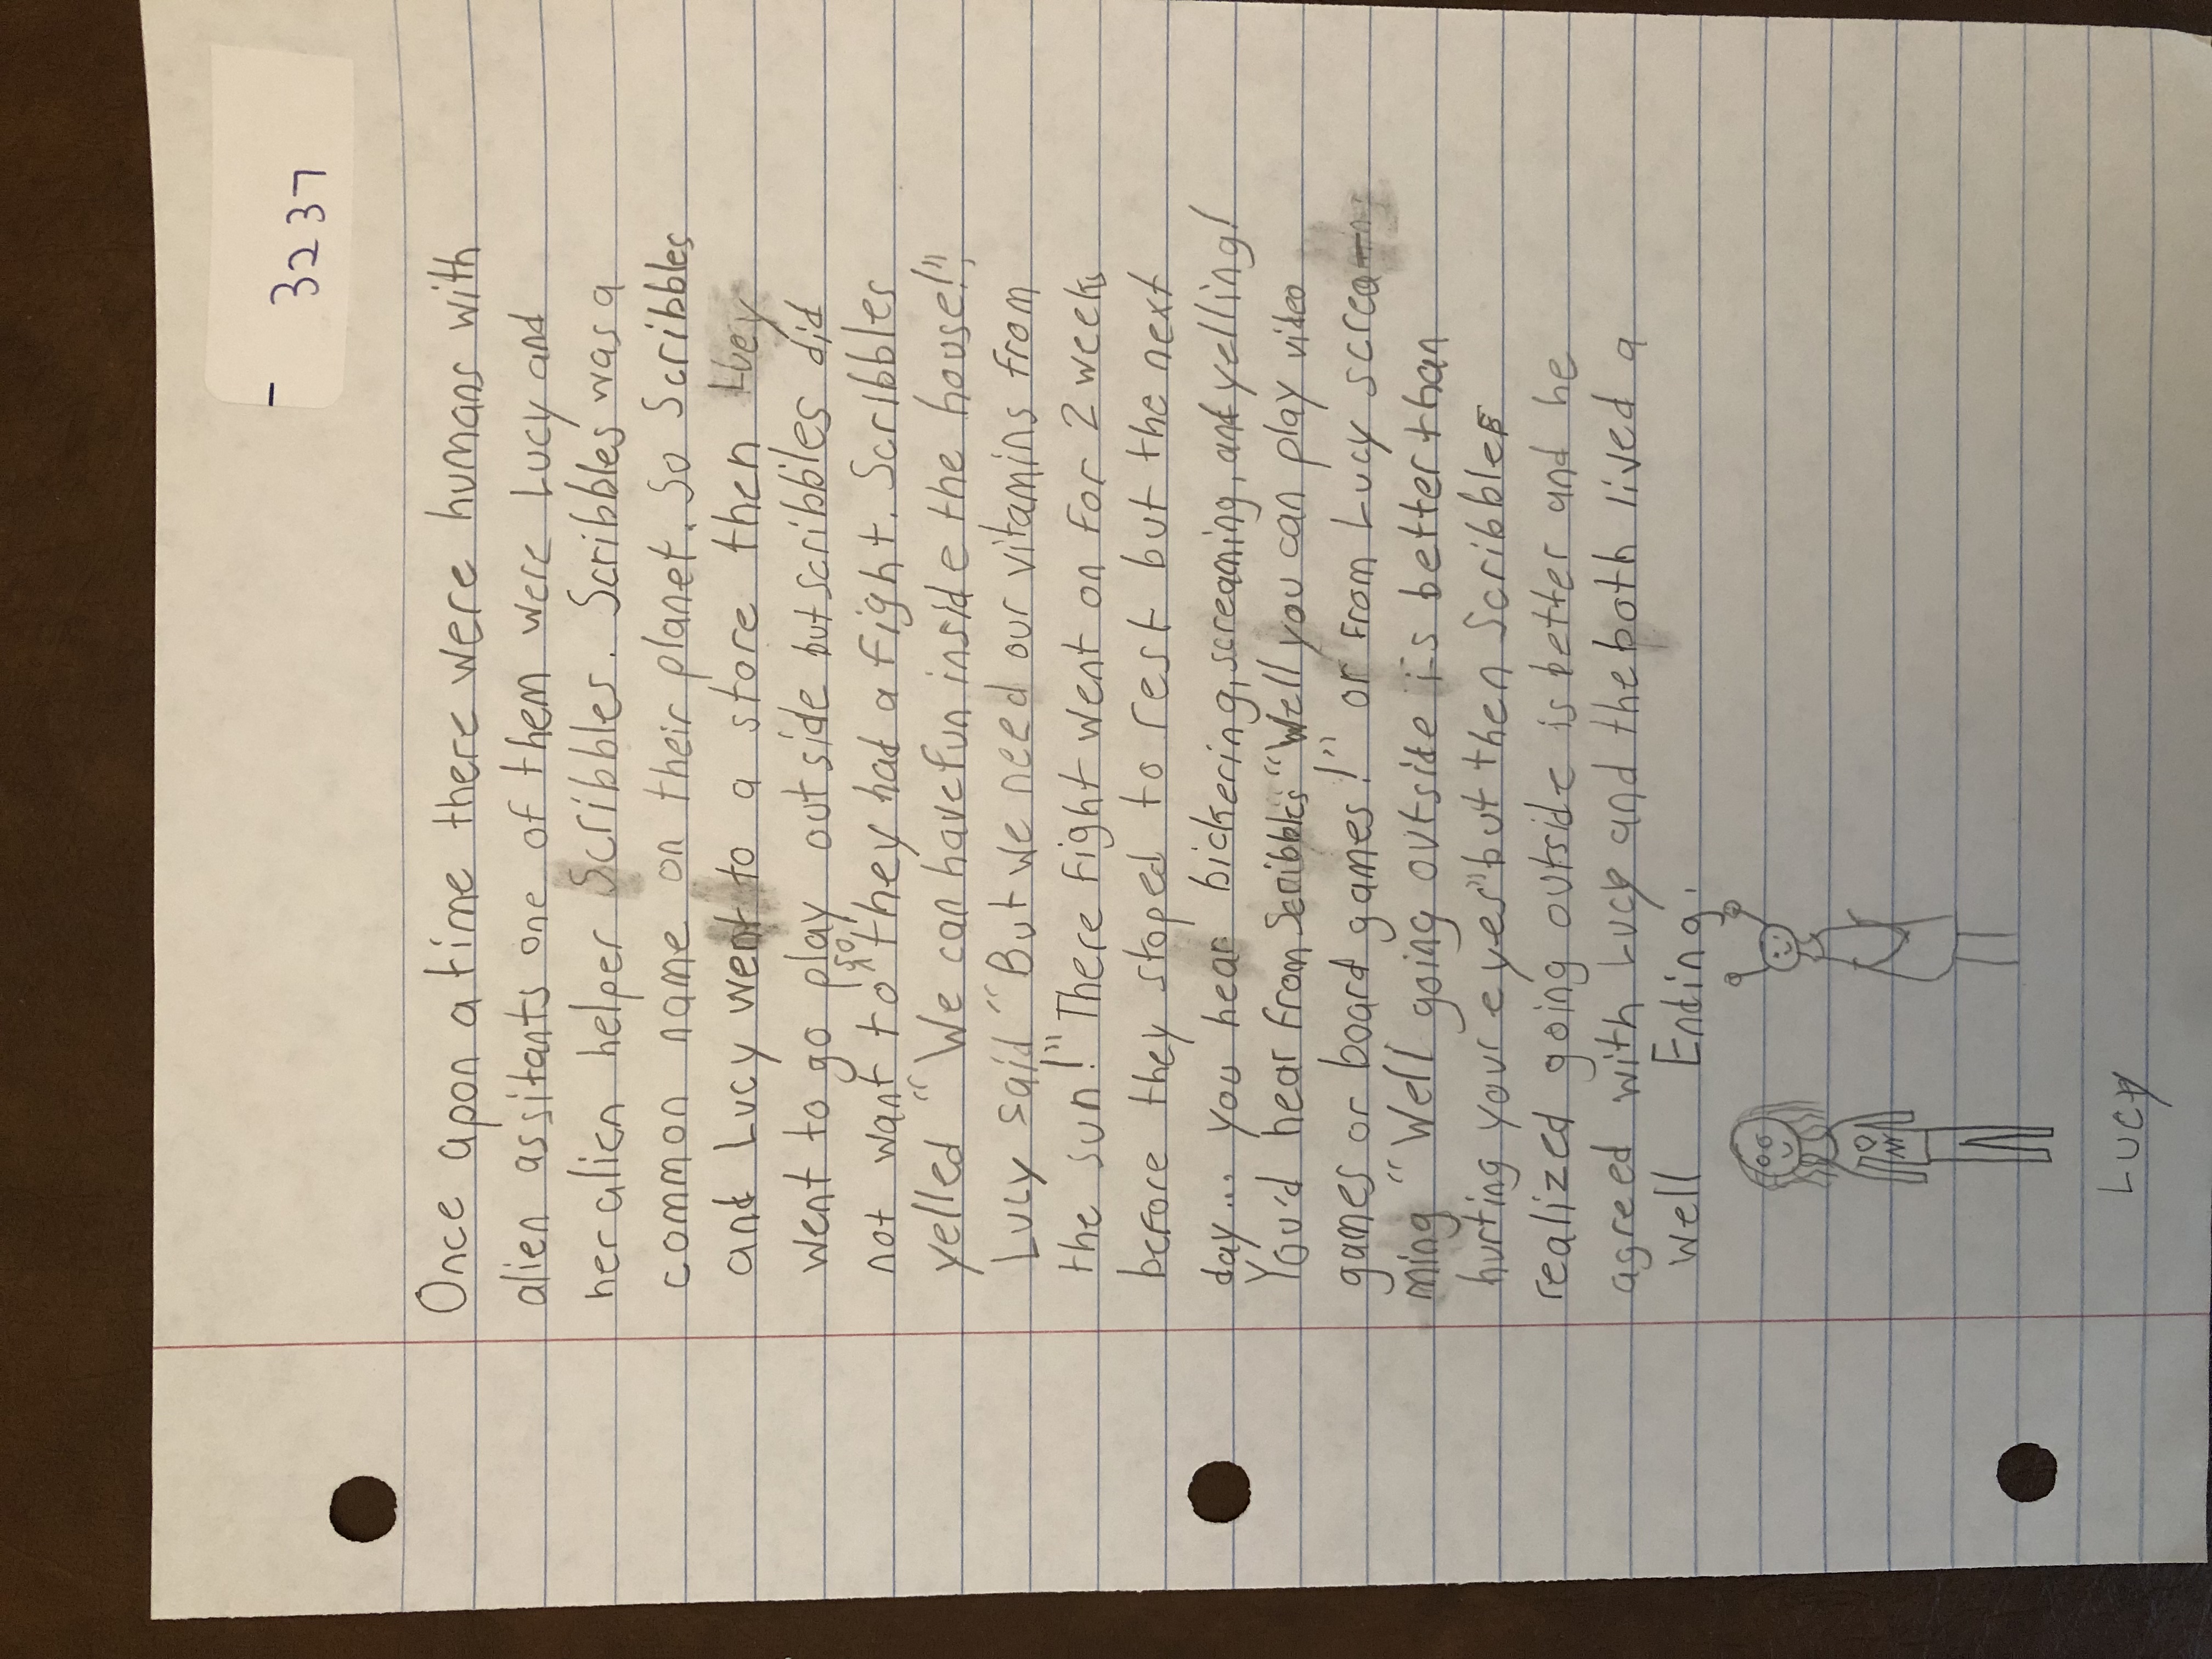 3237
Once apon a time there were humans with
alien assitants one of them were Lucy and
her alien helper Scribbles. Scribbles was a
common name on their planet. So Scribbles
and Lucy went to a store then Lucy
went to go play outside but scribbles did
not want to so they had a fight. Scribbles
yelled "We can have fun inside the house!",
Lucy said "But we need our vitamins from
the sun!" There fight went on for 2 weeks
before they stoped to rest but the next
day... you hear bickering, screaming, and yelling!
You'd hear from Scribbles "Well you can play video
games or board games!" or from Lucy screa-
ming "Well going outside is better than
hurting your eyes" but then Scribbles
realized going outside is better and he
agreed with Lucy and the both lived a
well Ending.
NY
Lucy